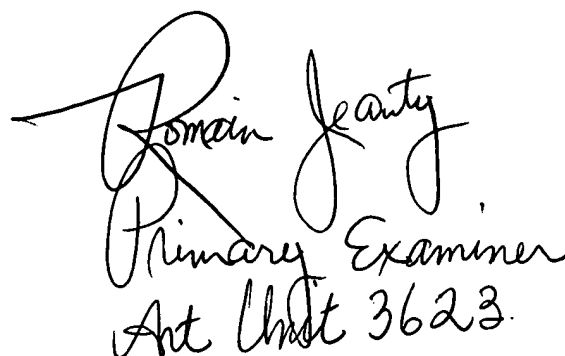 Romain Jeanty
Primary Examiner
Art Unit 3623.